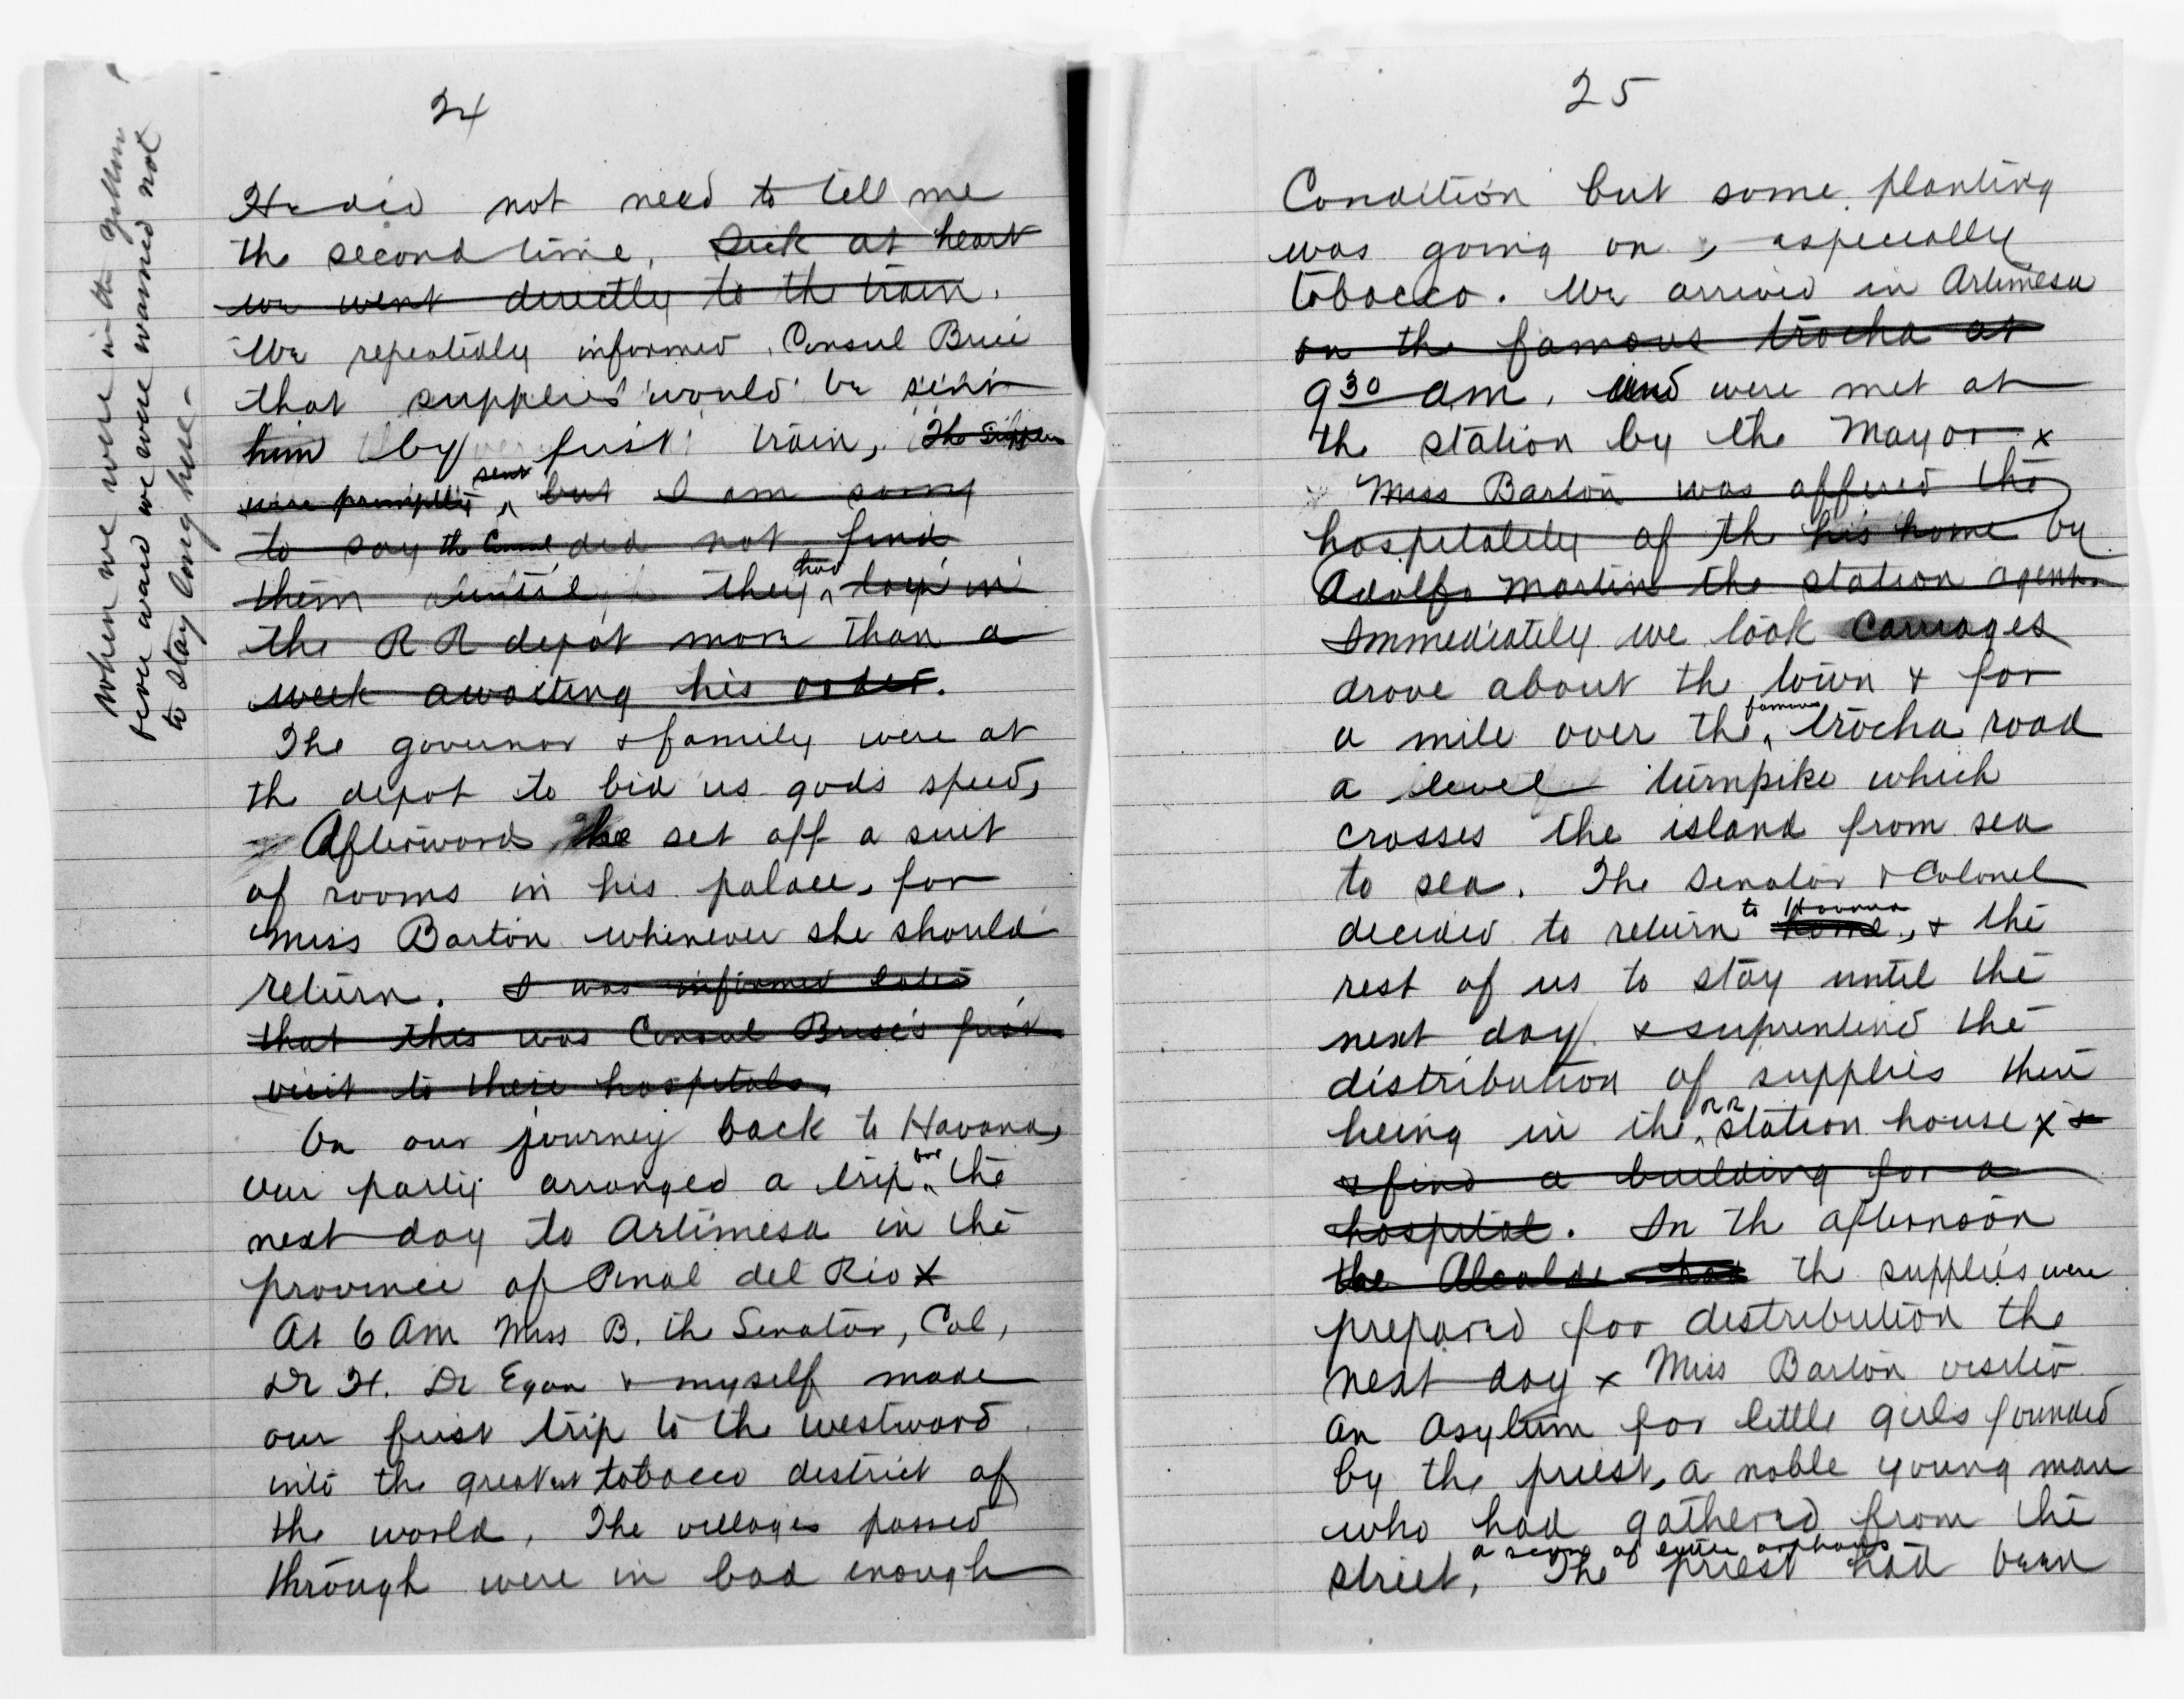 24
When we were in the yellow
fever ward we were warned not
to stay long here -
He did not need to tell me
the second time. Sick at heart
we went directly to the train.
We repeatedly informed Consul Brice
that supplies would be sent
him by first train, The supplies
were promptly sent but I am sorry
to say the Consul did not find
them until they had layn in
the R R depot more than a
week awaiting his order.
The governor & family were at
the depot to bid us gods speed,
Afterward he set off a suit
of rooms in his palace, for
Miss Barton whenever she should
return. I was informed later
that this was Consul Brice's first
visit to these hospitals.
On our journey back to Havana,
our party arranged a trip for the
next day to Artimesa in the
province of Pinal del Rio x
At 6 Am Miss B. the Senator, Col,
Dr H. Dr Egan & myself made
our first trip to the westward
into the greatest tobacco district of
the world, The villages passed
through were in bad enough
25
Condition but some planting
was going on, especially
tobacco. We arrived in Artimesa
on the famous trocha at
9 30 am, and were met at
the station by the Mayor x
Miss Barton was offered the
hospitality of th his home by
Adolfo Martin the station agent.
Immediately we took carriages
drove about the town & for
a mile over the famous trocha road
a level turnpike which
crosses the island from sea
to sea. The Senator & Colonel
decided to return to Havana home, & the
rest of us to stay until the
next day & suprentend the
distribution of supplies there
being in the RR station house x &
& find a building for a
hospital. In th afternoon
the Alcalde had the supplies were
prepared for distribution the
next day x Miss Barton visited
an asylum for little girls founded
by the priest, a noble young man
who had gathered from the
street, a score of little orphans The priest had been